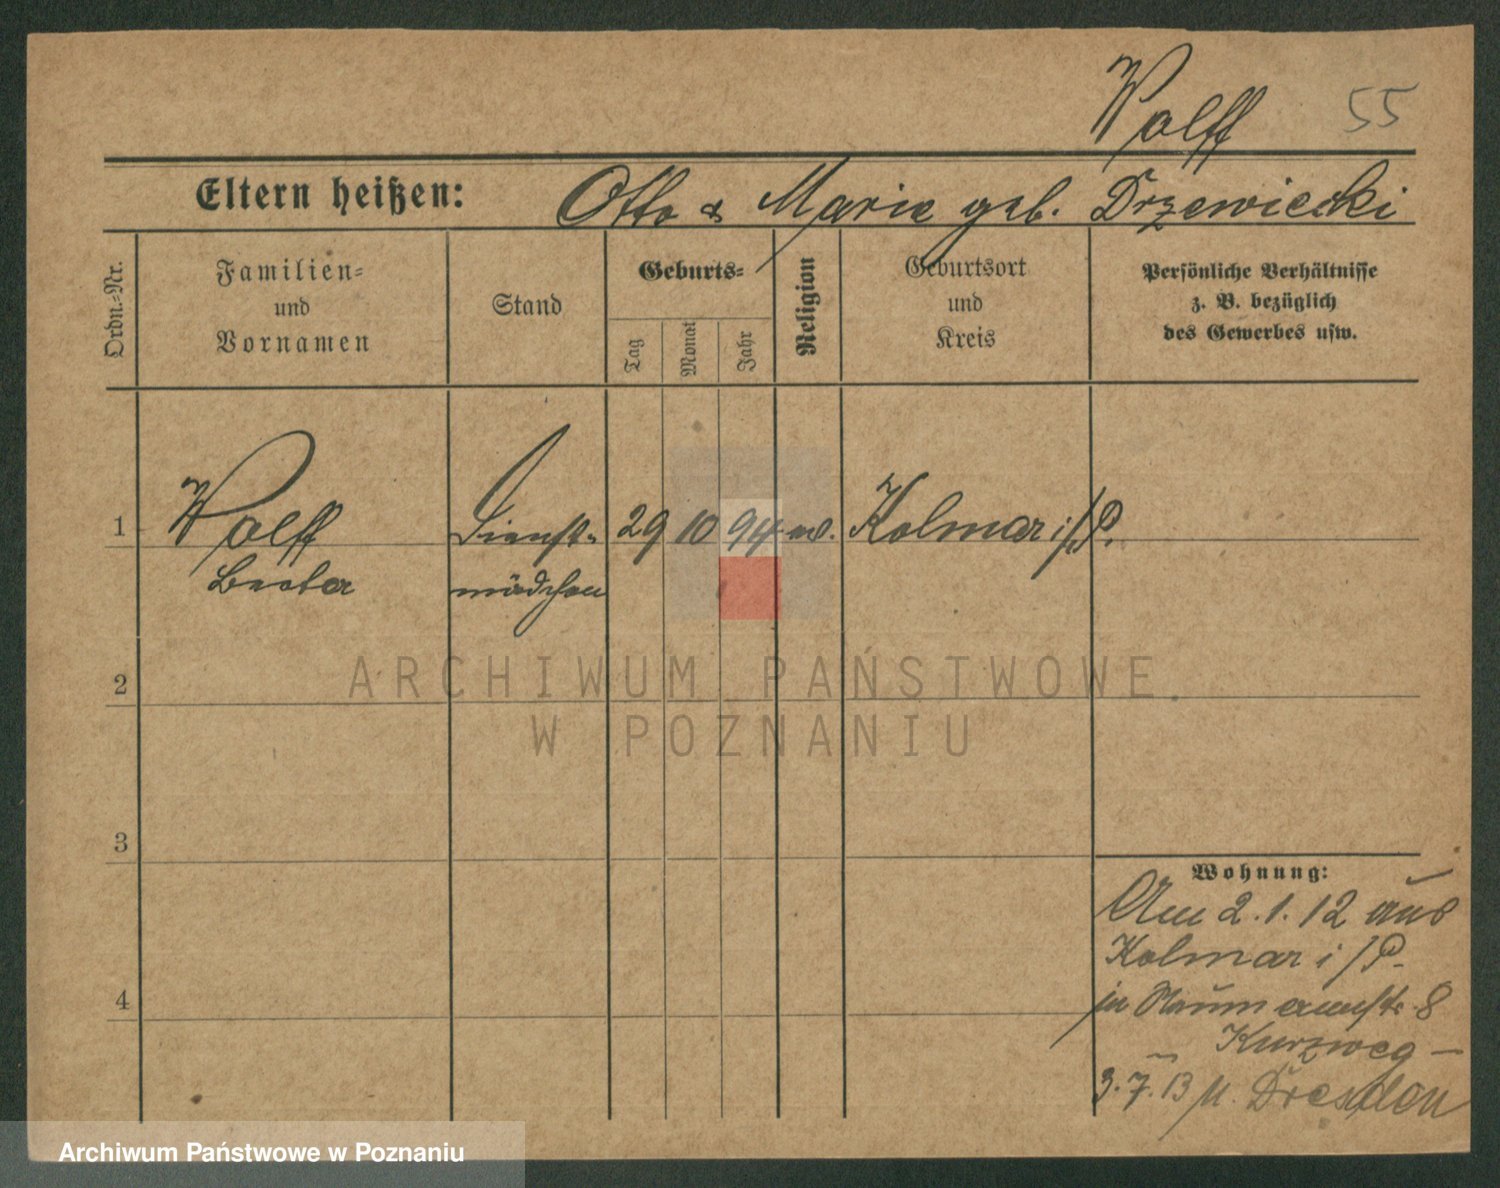 Wolff 55
Eltern heißen: Otto & Marie geb. Drzewiecki
Ordn.-Nr.
Familien-
und
Vornamen
Stand
Geburts-
Tag
Monat
Jahr
Religion
Geburtsort
und
Kreis
Persönliche Verhältnisse
z. B. bezüglich
des Gewerbes usw.
1 Wolff Dienst- 29 10 94 ev. Kolmar i/P.
mädchen
ARCHIWUM PAŃSTWOWE
W POZNANIU
2
3
4
Wohnung:
Am 2.1.12 aus
Kolmar i/P.
in Naumannstr. 8
Kurzweg –
3.7.13 n. Dresden
Archiwum Państwowe w Poznaniu